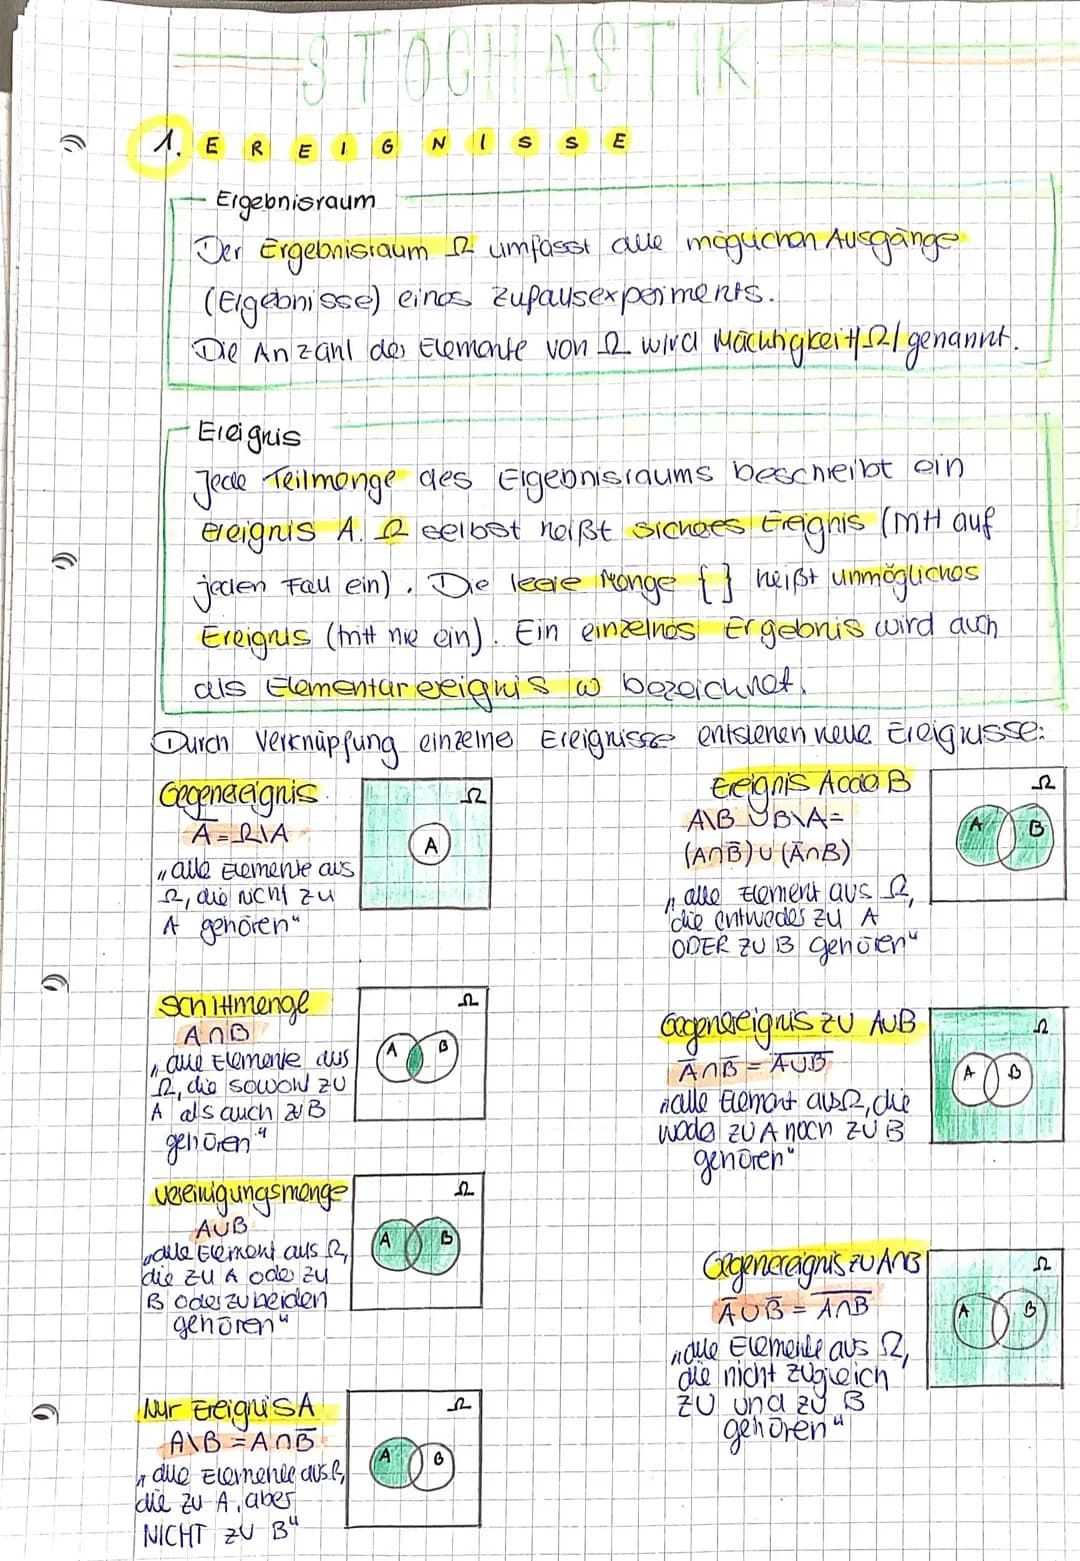 STOCHASTIK
1. EREIGNISSE
Ergebnisraum
Der Ergebnisraum Ω umfasst alle möglichen Ausgänge
(Ergebnisse) eines Zufallsexperiments.
Die Anzahl der Elemente von Ω wird Mächtigkeit |Ω| genannt.
Ereignis
Jede Teilmenge des Ergebnisraums beschreibt ein
Ereignis A. Ω selbst heißt sicheres Ereignis (tritt auf
jeden Fall ein). Die leere Menge { } heißt unmögliches
Ereignis (tritt nie ein). Ein einzelnes Ergebnis wird auch
als Elementarereignis ω bezeichnet.
Durch Verknüpfung einzelne Ereignisse entstehen neue Ereignisse:
Gegenereignis
Ā = Ω\A
„alle Elemente aus
Ω, die nicht zu
A gehören"
Ω
A
Schnittmenge
A∩B
„alle Elemente aus
Ω, die sowohl zu
A als auch zu B
gehören"
Ω
A B
Vereinigungsmenge
A∪B
„alle Element aus Ω,
die zu A oder zu
B oder zu beiden
gehören"
Ω
A B
Nur Ereignis A
A\B = A∩B̄
„alle Elemente aus Ω,
die zu A, aber
NICHT zu B"
Ω
A B
Ereignis A oder B
A\B ∪ B\A =
(A∩B̄) ∪ (Ā∩B)
„alle Element aus Ω,
die entweder zu A
ODER zu B gehören"
Ω
A B
Gegenereignis zu A∪B
Ā∩B̄ = A̅∪̅B̅
„alle Element aus Ω, die
weder zu A noch zu B
gehören"
Ω
A B
Gegenereignis zu A∩B
Ā∪B̄ = A̅∩̅B̅
„alle Elemente aus Ω,
die nicht zugleich
zu und zu B
gehören"
Ω
A B